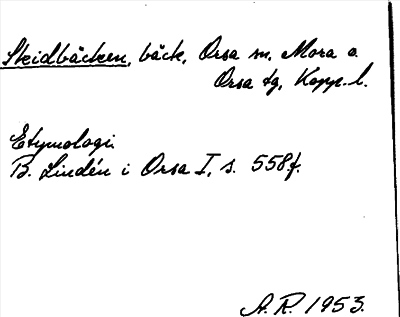 Skidbäcken, bäck, Orsa sn, Mora o.
Orsa tg, Kopp. l.
Etymologi.
B. Lindén i Orsa I, s. 558 f.
A. R. 1953.